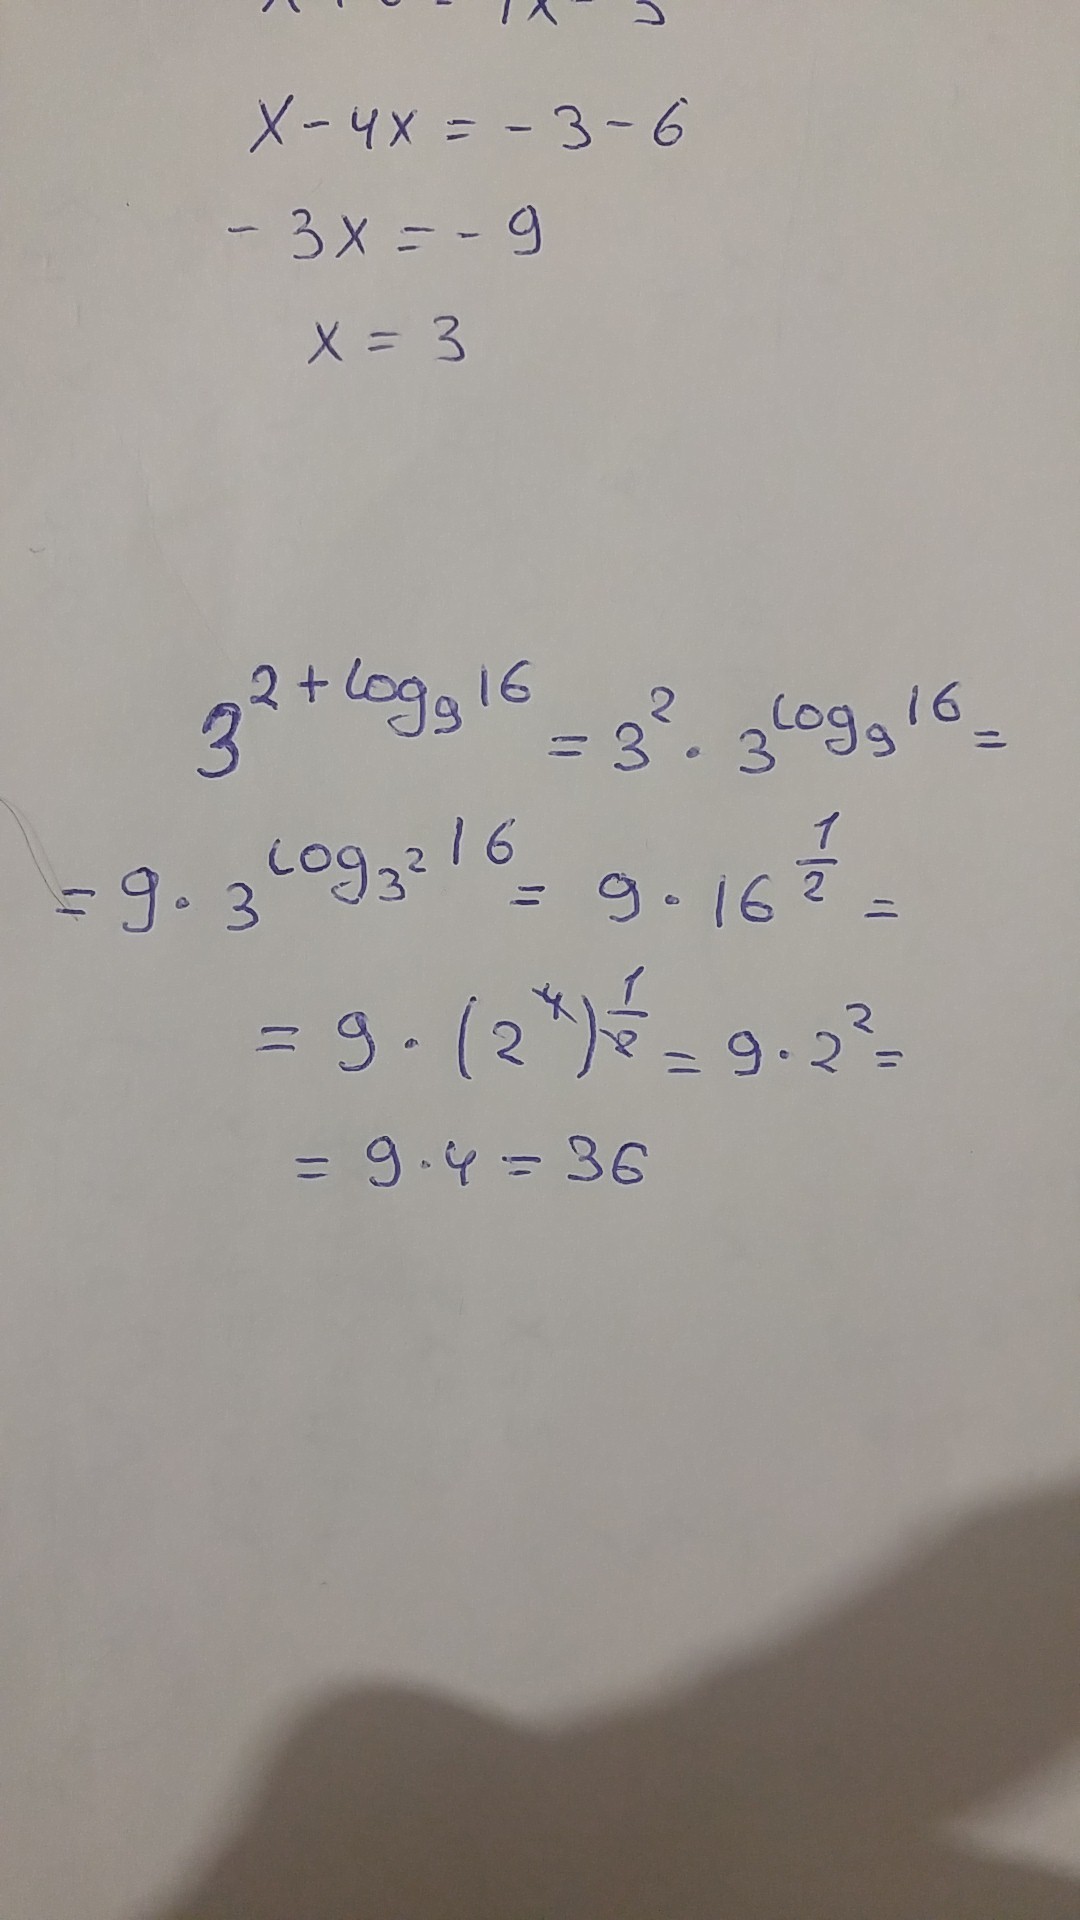 x - 4x = - 3 - 6
- 3x = - 9
x = 3
3^{2 + log_9 16} = 3^2 · 3^{log_9 16} =
= 9 · 3^{log_{3^2} 16} = 9 · 16^{1/2} =
= 9 · (2^4)^{1/2} = 9 · 2^2 =
= 9 · 4 = 36